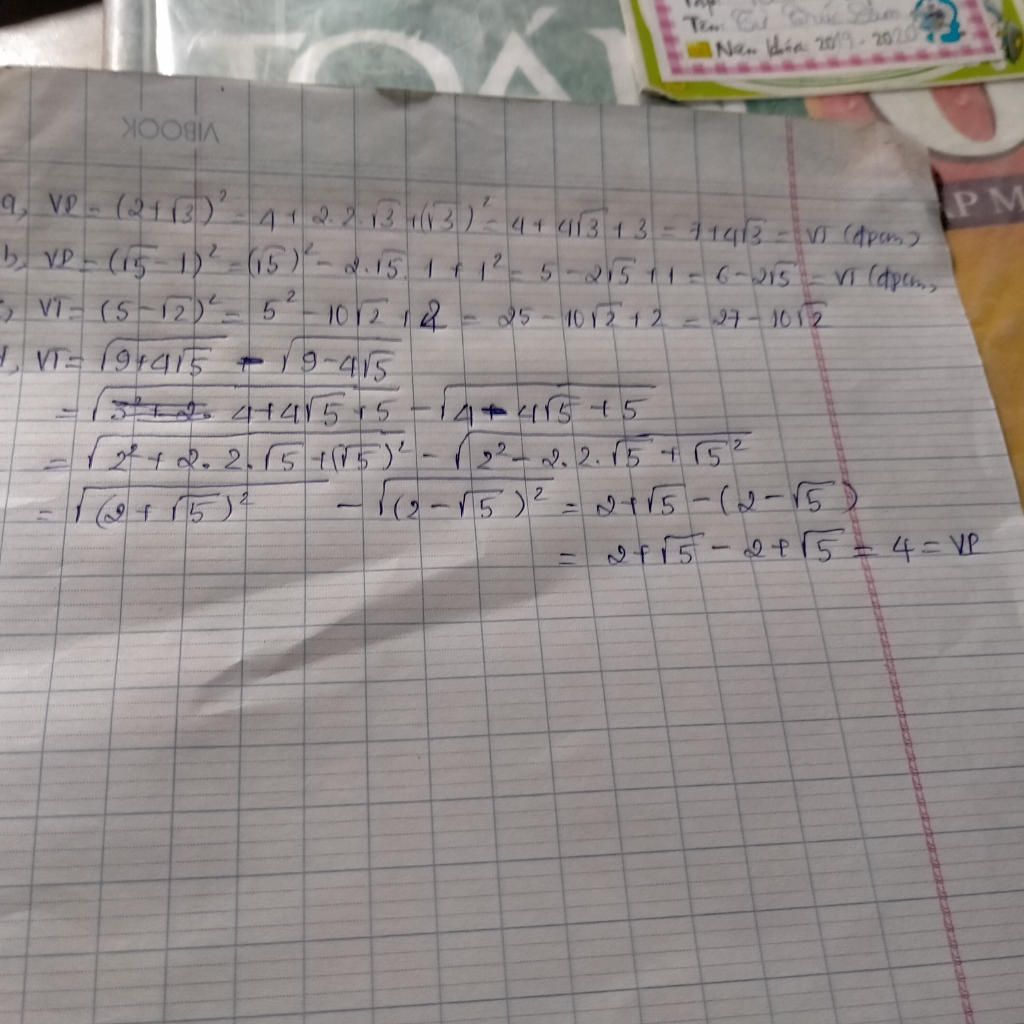 TOÁN
Tên:
Năm khóa 2019 - 2020
VIBOOK
AP M
a, VP = (2+√3)² = 4 + 2.2.√3 + (√3)² = 4 + 4√3 + 3 = 7+4√3 = VT (đpcm)
b, VP = (√5-1)² = (√5)² - 2.√5.1 + 1² = 5 - 2√5 + 1 = 6 - 2√5 = VT (đpcm)
c, VT = (5-√2)² = 5² - 10√2 + 2 = 25 - 10√2 + 2 = 27 - 10√2
d, VT = √(9+4√5) - √(9-4√5)
= √(4+4√5+5) - √(4-4√5+5)
= √(2² + 2.2.√5 + (√5)²) - √(2² - 2.2.√5 + √5²)
= √(2+√5)² - √(2-√5)² = 2+√5 - (2-√5)
= 2+√5 - 2+√5 = 4 = VP